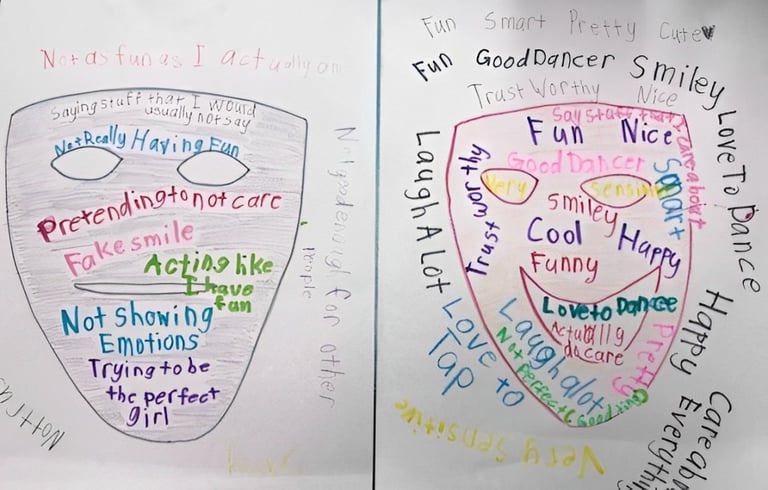 Not as fun as I actually am
Saying stuff that I would
usually not say
Not Really Having Fun
Pretending to not care
Fake smile
Acting like
I have
fun
Not showing
Emotions
Trying to be
the perfect
girl
Not good enough for other
people
Fun Smart Pretty Cute
Fun Good Dancer Smiley
Trust Worthy Nice
Love To Dance
Happy
Laugh A Lot
Love to
Tap
Very Sensitive
Say stuff that I care about
Fun Nice
Good Dancer
Smart
Trust worthy
Very
Smiley
Cool
Happy
Funny
Love to Dance
Actually
do care
Pretty
Laugh alot
Not perfect